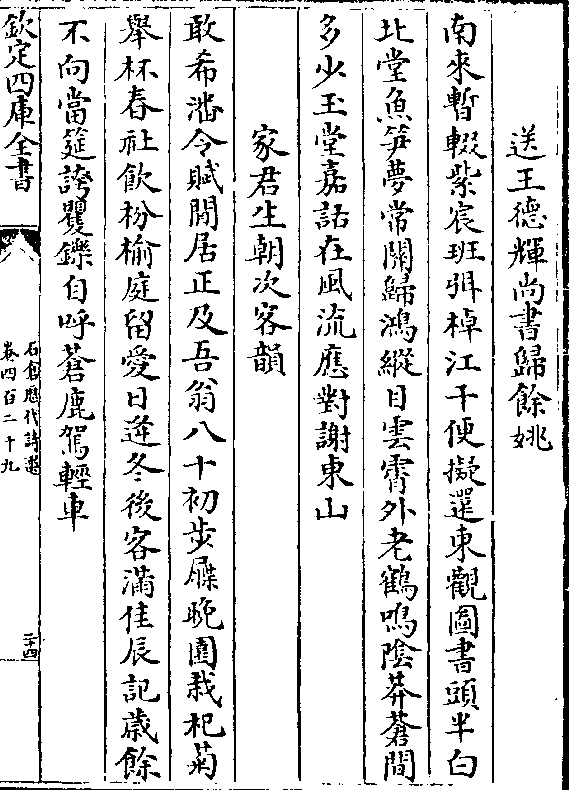 送王德輝尚書歸餘姚
南來暫輟紫宸班弭棹江干便擬還東觀圖書頭半白
北堂魚笋夢常關歸鴻縱目雲霄外老鶴鳴陰莽蒼間
多少玉堂嘉話在風流應對謝東山
家君生朝次客韻
敢希潘令賦閒居正及吾翁八十初步屧晚園栽杞菊
舉杯春社飲枌榆庭留愛日逢冬後客滿佳辰記歲餘
不向當筵誇矍鑠自呼蒼鹿駕輕車
欽定四庫全書
石倉歷代詩選
卷四百二十九
二十四